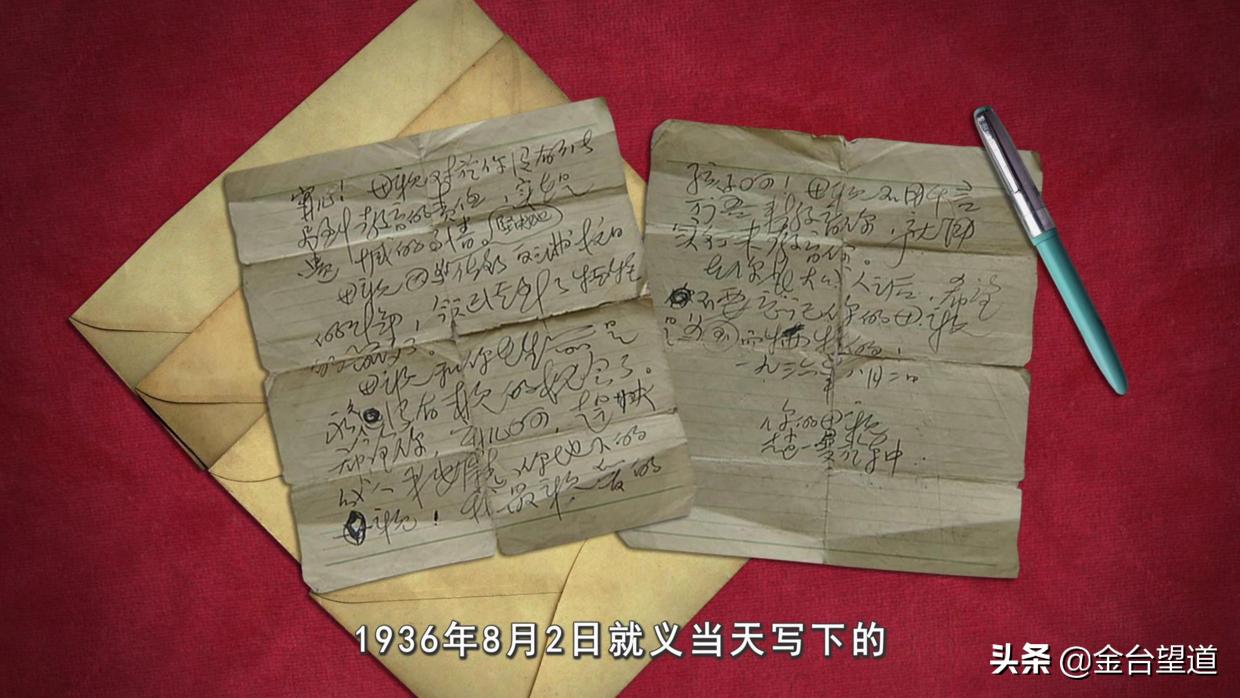 宁儿！母親对於你没有能
尽到教育的责任，实在是
遗憾的事情。
坚决地
母親因为作了反满抗日
的斗争，今天已经到了牺牲
的前夕了。
母親和你在生前是
永久没有再見的机会了。
希望你，宁儿啊！赶快
成人，来安慰你地下的
母親！我最親爱的
孩子啊！母親不用千言
万语来教育你，就用
实行来教育你。
在你长大成人之后，希望
不要忘记你的母親
是为国而牺牲的！
一九三六年八月二日
你的母親
赵一曼于车中
1936年8月2日就义当天写下的
头条 @金台望道